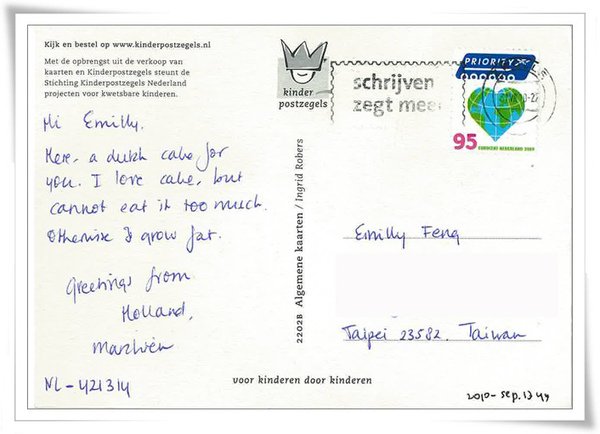 Kijk en bestel op www.kinderpostzegels.nl
Met de opbrengst uit de verkoop van
kaarten en Kinderpostzegels steunt de
Stichting Kinderpostzegels Nederland
projecten voor kwetsbare kinderen.
kinder
postzegels
schrijven
zegt meer
PRIORITY
95
EUROCENT NEDERLAND
Hi Emilly,
Here, a dutch cake for
you. I love cake, but
cannot eat it too much.
Otherwise I grow fat.
Greetings from
Holland,
NL-421314
2202B Algemene kaarten / Ingrid Robers
Emilly Feng
Taipei 23582, Taiwan
voor kinderen door kinderen
2010-sep.13 49